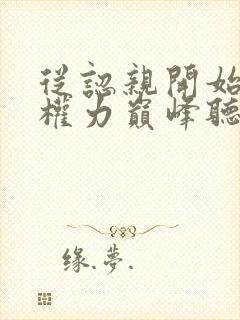 從認親開始
權力巔峰聽
缘.夢.